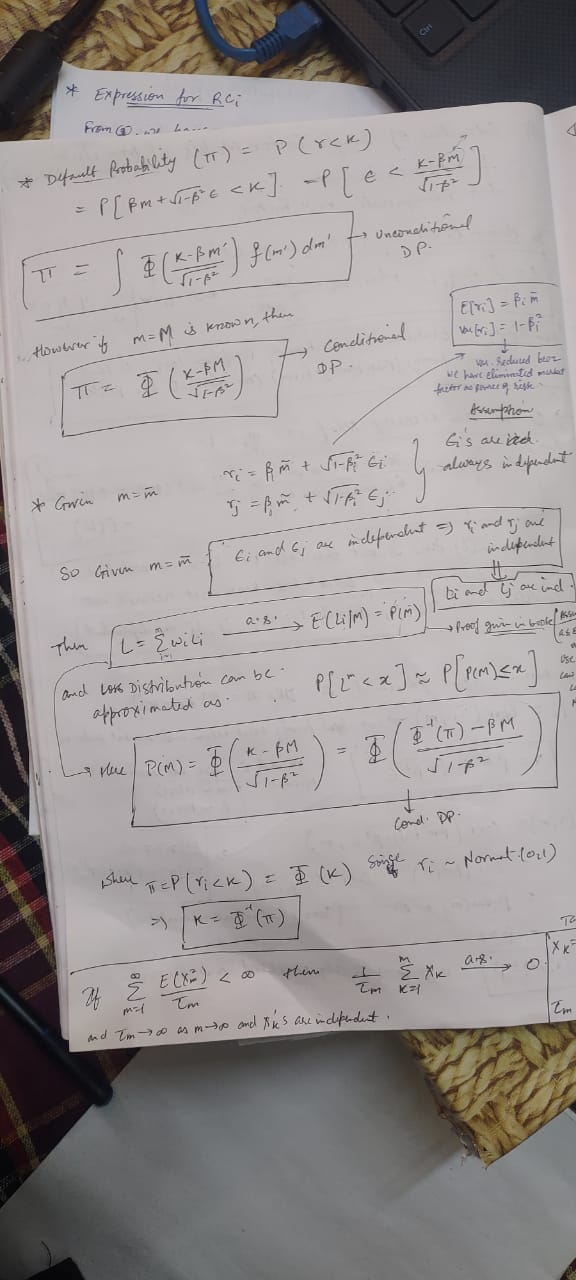 Ctrl
* Expression for RCi
From ②, we have
* Default Probability (π) = P(r<K)
= P[βm + √1-β² ϵ < K] = P[ϵ < K-βM / √1-β²]
π = ∫ Φ(K-βm' / √1-β²) f(m') dm' → Unconditional DP.
However if m=M is known, then
π = Φ(K-βM / √1-β²) → Conditional DP
E[ri] = βi m̄
Var[ri] = 1-βi²
Var. reduced becz
we have eliminated market
factor as source of risk.
Assumption
* Given m=m̄
ri = βi m̄ + √1-βi² ϵi
rj = βj m̄ + √1-βi² ϵj
ϵi's are
always independent
So Given m=m̄ { ϵi and ϵj are independent ⇒ ri and rj are
independent
⇓
Li and Lj are ind.
Then L = Σ wi Li —a.s.→ E(Li|M) = P(m̄)
→ Proof given in book
and Loss Distribution can be
approximated as.
P[Lⁿ < x] ≈ P[P(M) ≤ x]
→ Here P(M) = Φ(K-βM / √1-β²) = Φ(Φ⁻¹(π) - βM / √1-β²)
↓
Cond. DP.
where π = P(ri<K) = Φ(K) Since ri ~ Normal(0,1)
⇒ K = Φ⁻¹(π)
If Σ_{m=1}^{∞} E(Xm²) / τm < ∞ then 1/τm Σ_{K=1}^{m} XK —a.s.→ 0
and τm → ∞ as m → ∞ and Xk's are independent.
XK =
τm